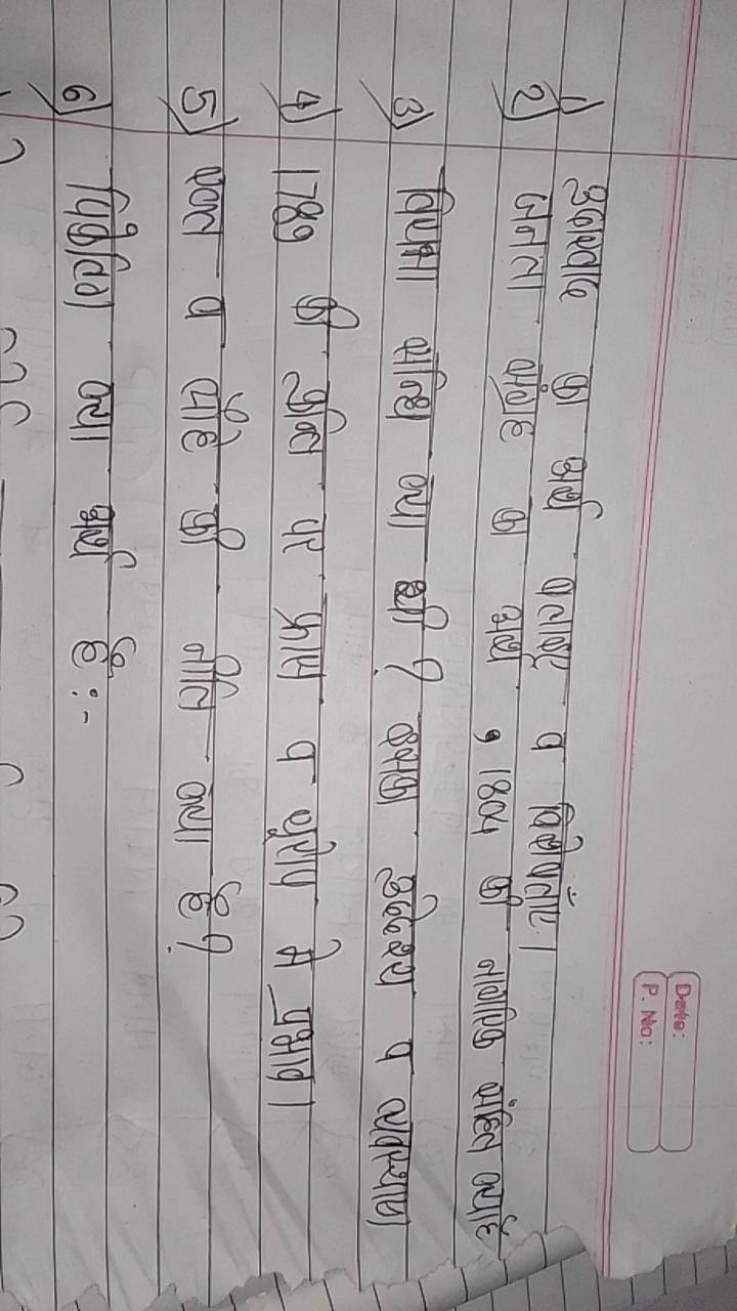 Date:
P. No:
1) उदारवाद का अर्थ बताइए व विशेषताएँ।
2) जनमत संग्रह का अर्थ, 1804 की नागरिक संहिता क्या है
3) वियना संधि क्या थी? इसका उद्देश्य व व्यवस्थाएं
4) 1789 की क्रांति पर फ्रांस व यूरोप में प्रभाव।
5) रक्त व लोहे की नीति क्या है?
6) क्या अर्थ है:-